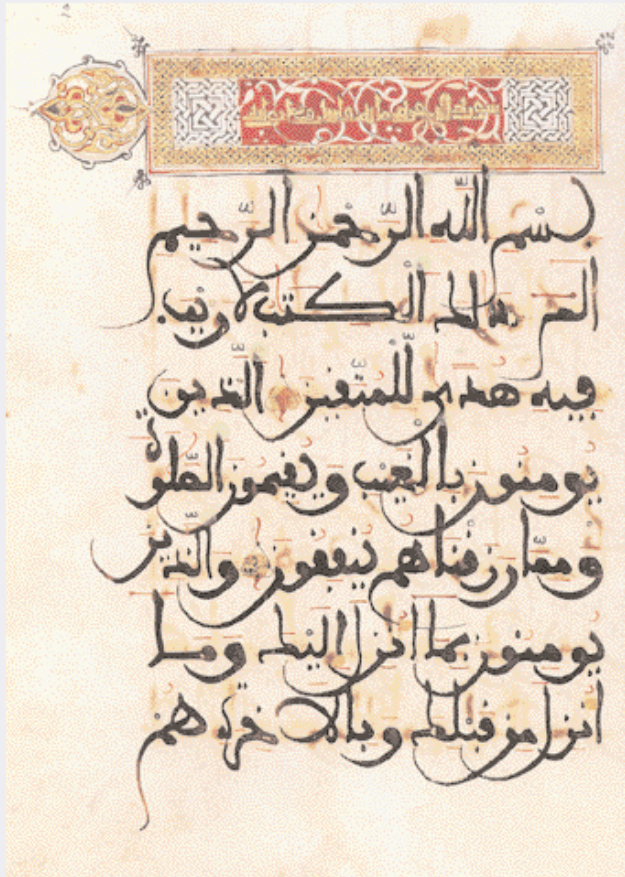 بسم الله الرحمن الرحيم
الم ذلك الكتب لا ريب
فيه هدى للمتقين الذين
يومنون بالغيب ويقيمون الصلوة
ومما رزقناهم ينفقون والذين
يومنون بما انزل اليك وما
انزل من قبلك وبالاخرة هم